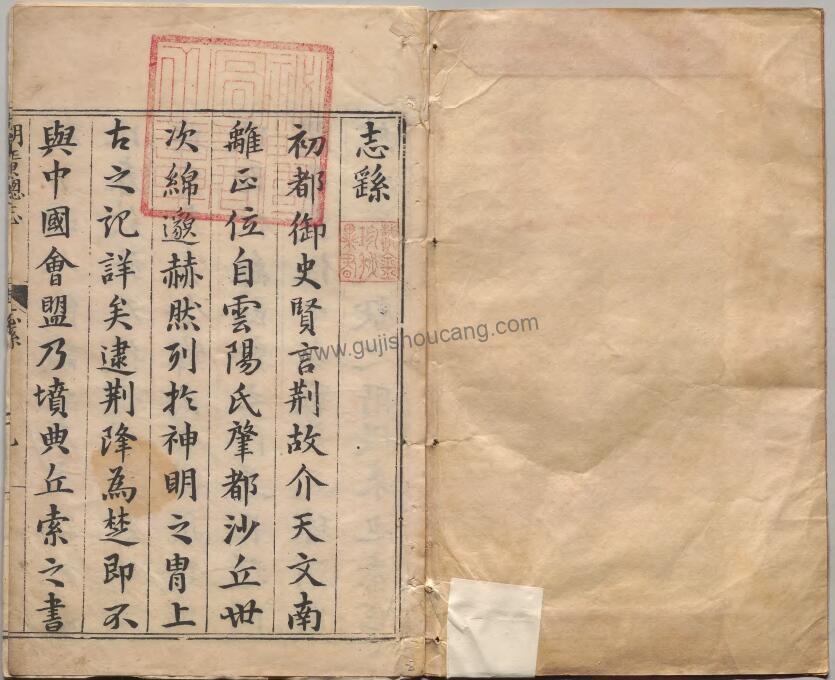 志繇
初都御史賢言荆故介天文南
離正位自雲陽氏肇都沙丘世
次綿邈赫然列於神明之胄上
古之記詳矣逮荆降為楚即不
與中國會盟乃墳典丘索之書
湖廣總志
志繇
www.gujishoucang.com